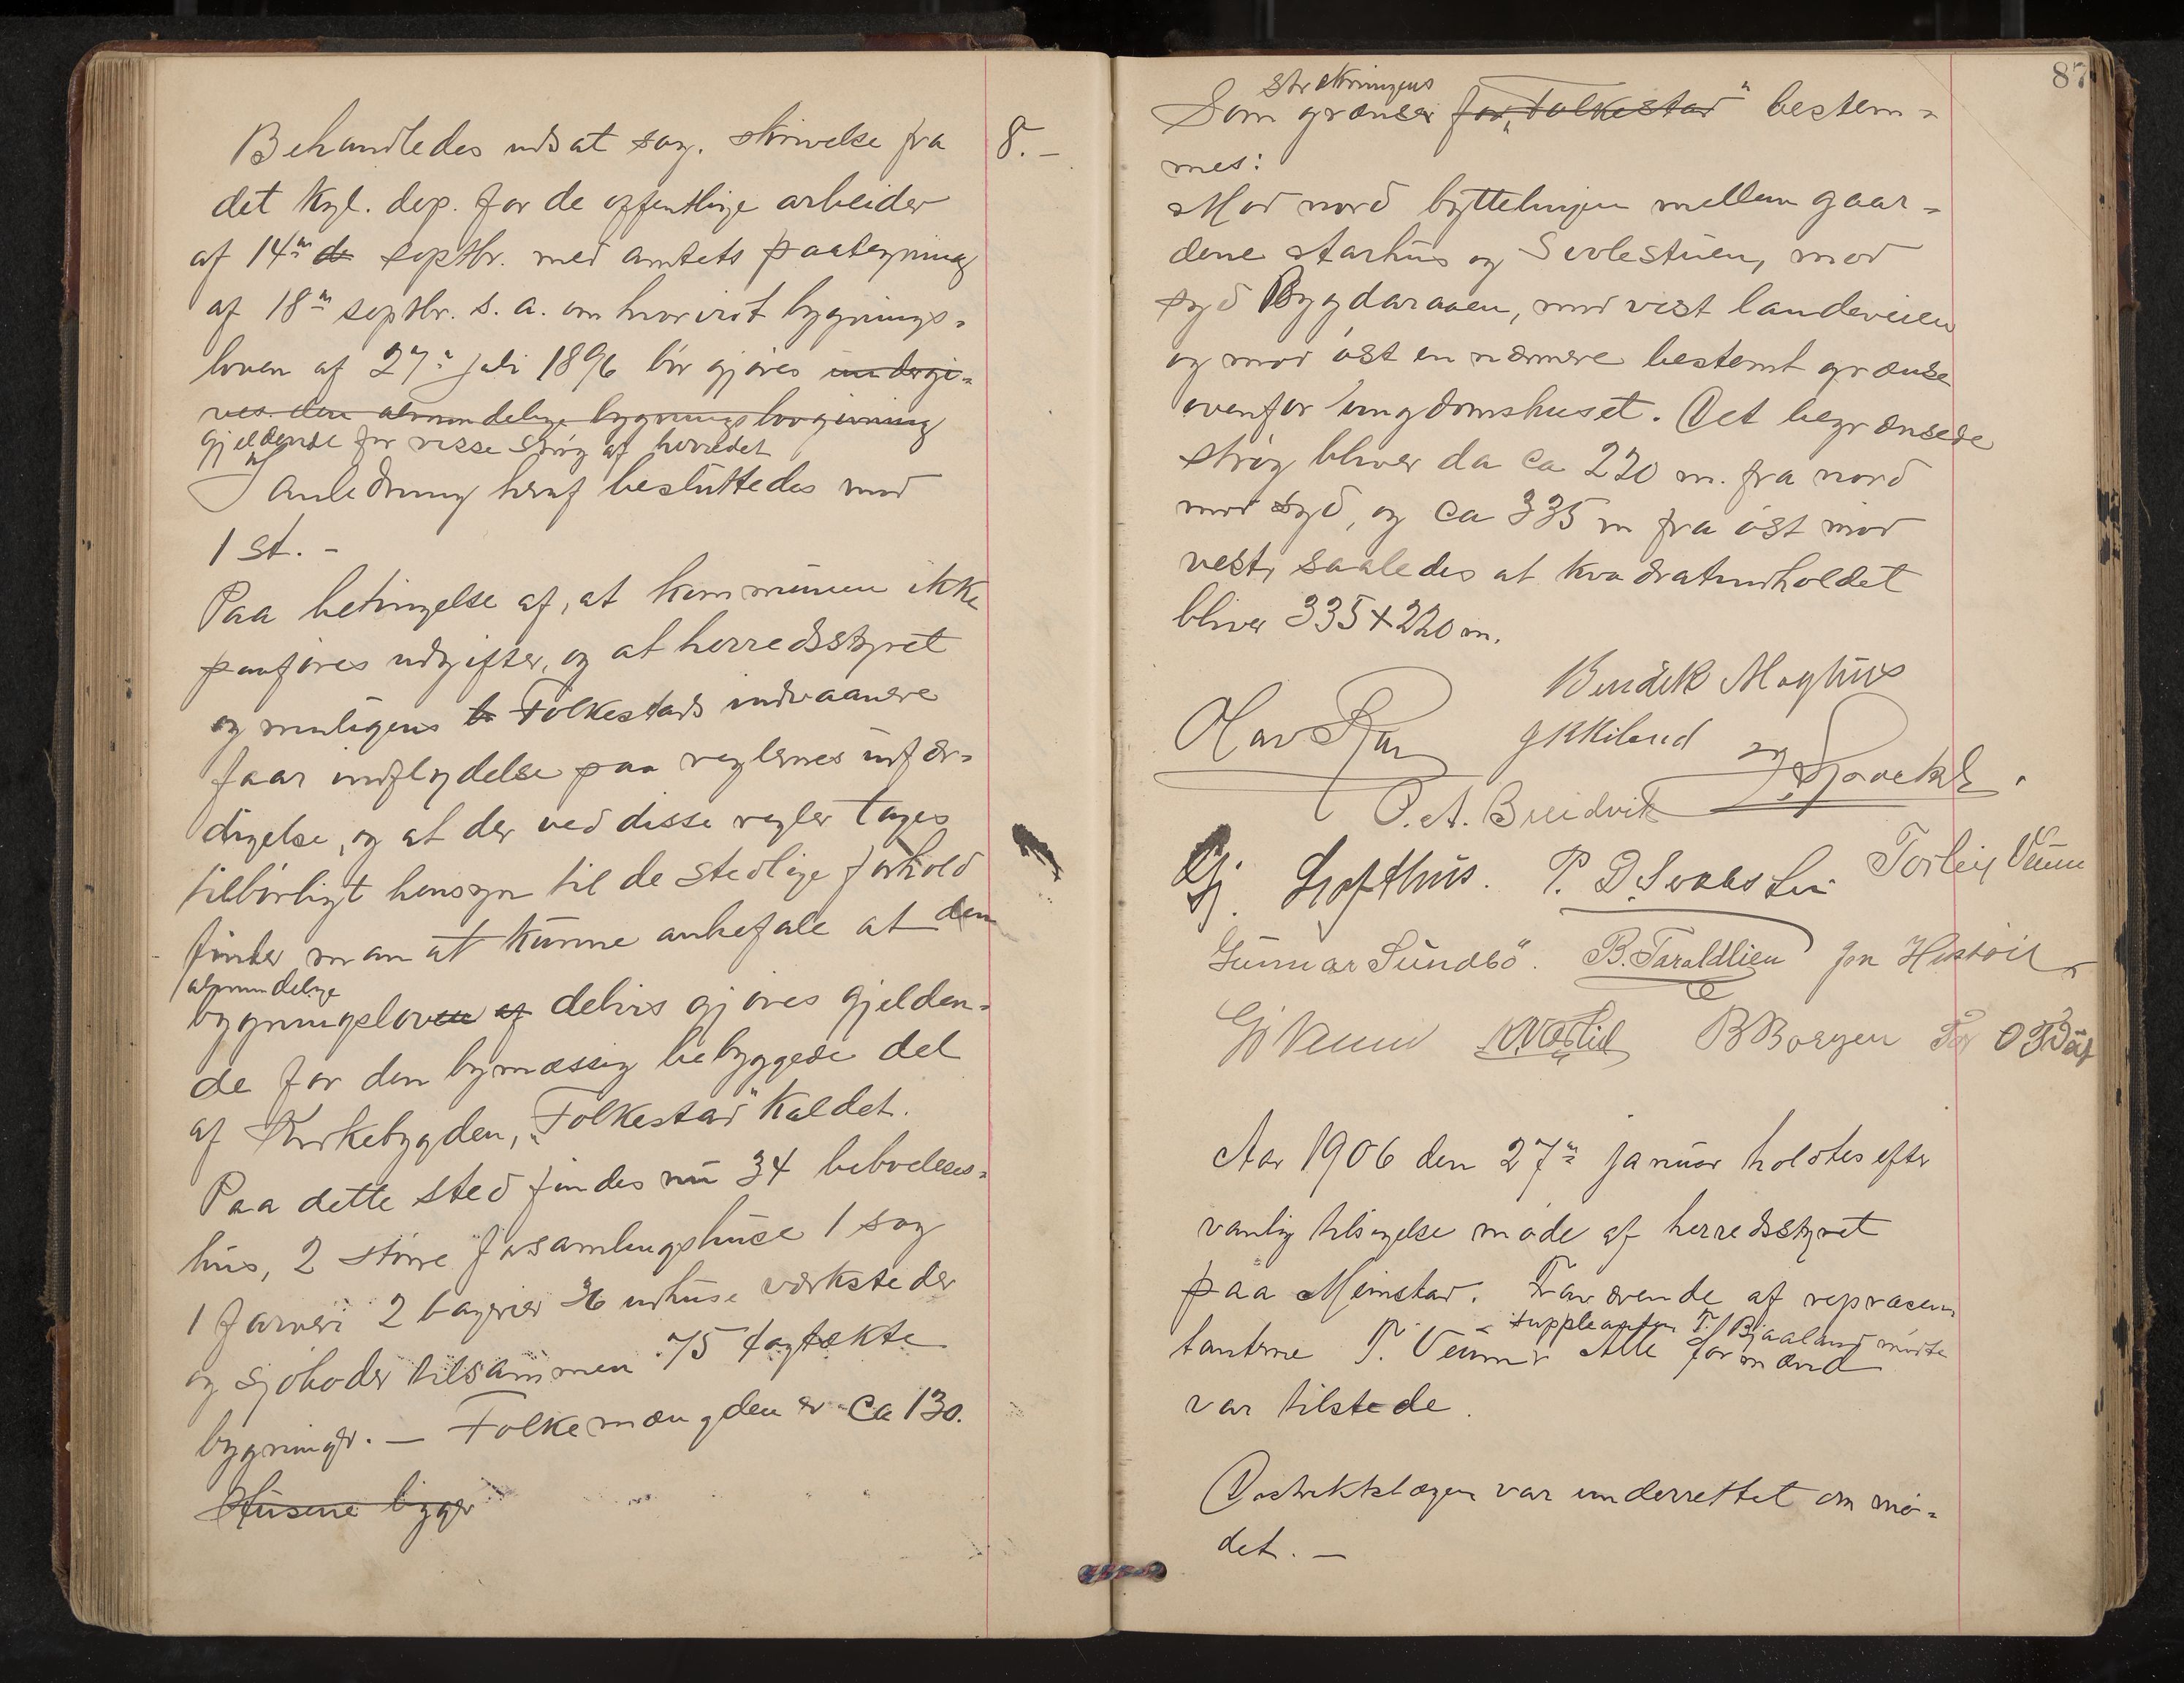 8.-
Behandledes udsat sag. skrivelse fra
det kgl. dep. for de offentlige arbeider
af 14de septbr. med amtets paategning
af 18de septbr. s. a. om hvorvidt bygnings-
loven af 27de juli 1896 bör gjöres undergi-
ves den almindelige bygningslovgivning
gjeldende for visse strög af herredet
I anledning heraf besluttedes mod
1 st. -
Paa betingelse af, at kommunen ikke
paaføres udgifter, og at herredsstyret
og muligens Folkestads indvaanere
faar indflydelse paa reglernes udfær-
digelse, og at der ved disse regler tages
tilbörligt hensyn til de stedlige forhold
finder man at kunne anbefale at den
almindelige
bygningsloven af delvis gjöres gjelden-
de for den bymæssig bebyggede del
af Kirkebygden, "Folkestad" kaldet.
Paa dette sted findes nu 34 beboelses-
hus, 2 större forsamlingshuse 1 sag
1 farveri 2 bagerier 36 udhuse værksteder
og sjöboder tilsammen 75 tagtækte
bygninger. - Folkemængden er ca 130.
Husene ligger
87
strækningens
Som grænser for "Folkestad" bestem-
mes:
Mod nord byttelinjen mellem gaar-
dene Aarhus og Svolestuen, mod
syd Bygdaraaen, mod vest landeveien
og mod öst en nærmere bestemt grænse
ovenfor ungdomshuset. Det begrænsede
strög bliver da ca 220 m. fra nord
mod syd, og ca 335 m fra öst mod
vest, saaledes at kvadratindholdet
bliver 335 x 220 m.
Bendik
Olav
O. A. Breidvik
Gj. Lofthus. Torleif Veum
Gunnar Sundbö. B. Taraldlien Jon
Gj Veum B Borgen
Aar 1906 den 27de januar holdtes efter
vanlig tilsigelse möde af herredsstyret
paa Meinstad. Fraværende af repræsen
suppleanten T. Bjaaland mödte
tanterne T. Veum Alle formænd
var tilstede.
Distriktslægen var underrettet om mö-
det. -